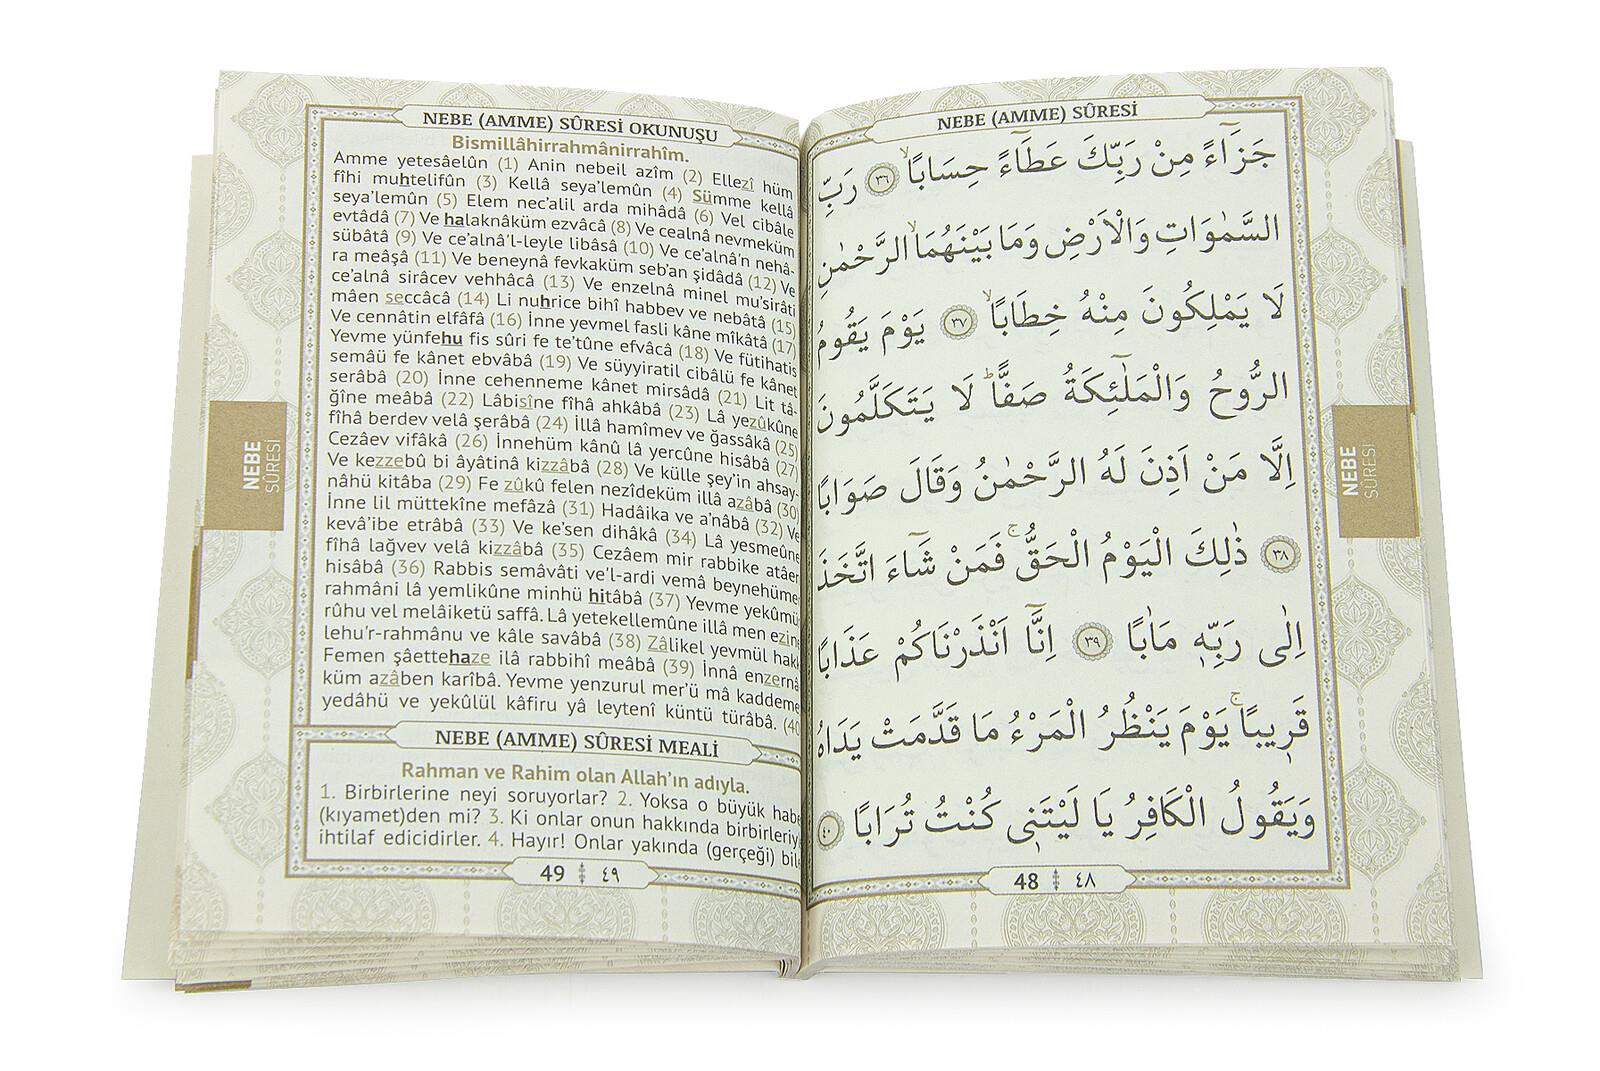 NEBE (AMME) SÛRESİ
جَزَٓاءً مِنْ رَبِّكَ عَطَٓاءً حِسَابًاۙ ﴿٣٦﴾ رَبِّ
السَّمٰوَاتِ وَالْاَرْضِ وَمَا بَيْنَهُمَاۙ الرَّحْمٰنِ
لَا يَمْلِكُونَ مِنْهُ خِطَابًاۙ ﴿٣٧﴾ يَوْمَ يَقُومُ
الرُّوحُ وَالْمَلٰٓئِكَةُ صَفًّاۜ لَا يَتَكَلَّمُونَ
اِلَّا مَنْ اَذِنَ لَهُ الرَّحْمٰنُ وَقَالَ صَوَابًا
﴿٣٨﴾ ذٰلِكَ الْيَوْمُ الْحَقُّۚ فَمَنْ شَٓاءَ اتَّخَذَ
اِلٰى رَبِّهٖ مَاٰبًا ﴿٣٩﴾ اِنَّٓا اَنْذَرْنَاكُمْ عَذَابًا
قَرٖيبًاۚ يَوْمَ يَنْظُرُ الْمَرْءُ مَا قَدَّمَتْ يَدَاهُ
وَيَقُولُ الْكَافِرُ يَا لَيْتَنٖى كُنْتُ تُرَابًا ﴿٤٠﴾
48 ٤٨
NEBE
SÛRESİ
NEBE (AMME) SÛRESİ OKUNUŞU
Bismillâhirrahmânirrahîm.
Amme yetesâelûn (1) Anin nebeil azîm (2) Ellezî hüm
fîhi muhtelifûn (3) Kellâ seya’lemûn (4) Sümme kellâ
seya’lemûn (5) Elem nec’alil arda mihâdâ (6) Vel cibâle
evtâdâ (7) Ve halaknâküm ezvâcâ (8) Ve cealnâ nevmeküm
sübâtâ (9) Ve ce’alnâ’l-leyle libâsâ (10) Ve ce’alnâ’n nehâ-
ra meâşâ (11) Ve beneynâ fevkaküm seb’an şidâdâ (12) Ve
ce’alnâ sirâcev vehhâcâ (13) Ve enzelnâ minel mu’sirâti
mâen seccâcâ (14) Li nuhrice bihî habbev ve nebâtâ (15)
Ve cennâtin elfâfâ (16) İnne yevmel fasli kâne mîkâtâ (17)
Yevme yünfehu fis sûri fe te’tûne efvâcâ (18) Ve fütihatis
semâü fe kânet ebvâbâ (19) Ve süyyiratil cibâlü fe kânet
serâbâ (20) İnne cehenneme kânet mirsâdâ (21) Lit tâ-
ğîne meâbâ (22) Lâbisîne fîhâ ahkâbâ (23) Lâ yezûkûne
fîhâ berdev velâ şerâbâ (24) İllâ hamîmev ve ğassâkâ (25)
Cezâev vifâkâ (26) İnnehüm kânû lâ yercûne hisâbâ (27)
Ve kezzebû bi âyâtinâ kizzâbâ (28) Ve külle şey’in ahsay-
nâhü kitâba (29) Fe zûkû felen nezîdeküm illâ azâbâ (30)
İnne lil müttekîne mefâzâ (31) Hadâika ve a’nâbâ (32) Ve
kevâ’ibe etrâbâ (33) Ve ke’sen dihâkâ (34) Lâ yesmeûne
fîhâ lağvev velâ kizzâbâ (35) Cezâem mir rabbike atâen
hisâbâ (36) Rabbis semâvâti ve’l-ardi vemâ beynehümer
rahmâni lâ yemlikûne minhü hitâbâ (37) Yevme yekûmü
rûhu vel melâiketü saffâ. Lâ yetekellemûne illâ men ezine
lehu’r-rahmânu ve kâle savâbâ (38) Zâlikel yevmül hakk
Femen şâettehaze ilâ rabbihî meâbâ (39) İnnâ enzernâ
küm azâben karîbâ. Yevme yenzurul mer’ü mâ kaddeme
yedâhü ve yekûlül kâfiru yâ leytenî küntü türâbâ. (40
NEBE (AMME) SÛRESİ MEALİ
Rahman ve Rahim olan Allah’ın adıyla.
1. Birbirlerine neyi soruyorlar? 2. Yoksa o büyük habe
(kıyamet)den mi? 3. Ki onlar onun hakkında birbirleriy
ihtilaf edicidirler. 4. Hayır! Onlar yakında (gerçeği) bil
49 ٤٩
NEBE
SÛRESİ